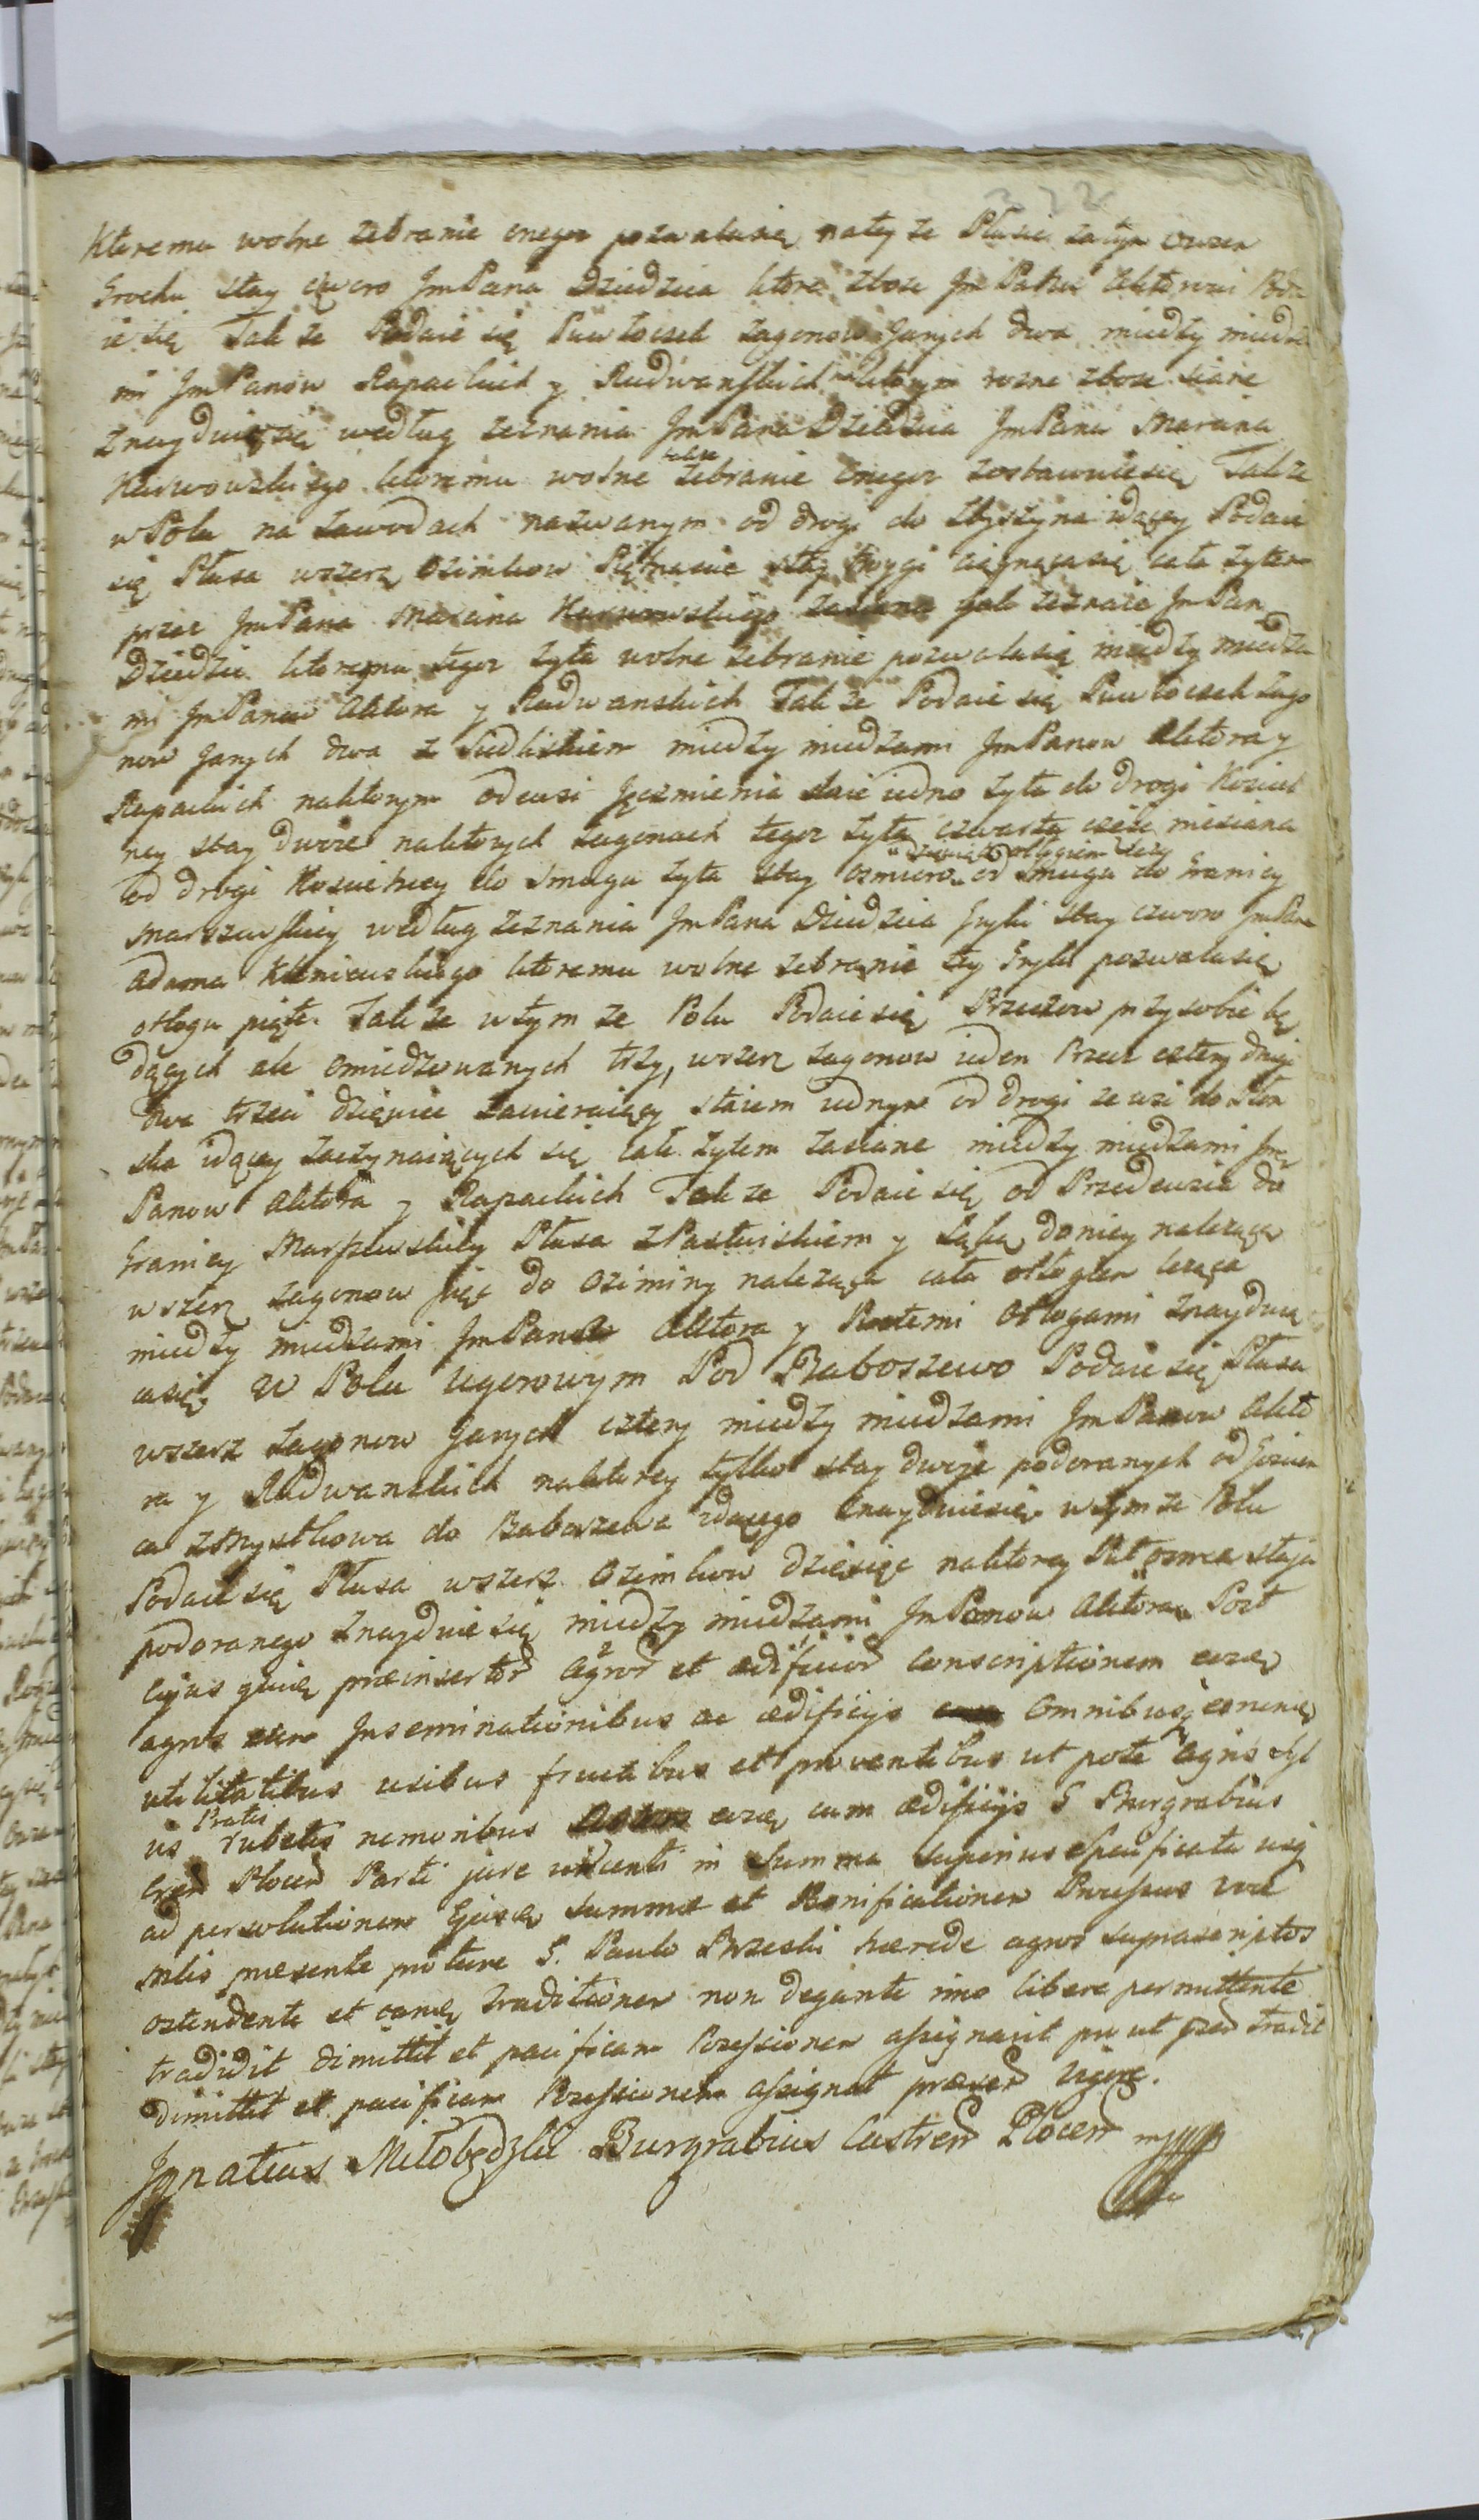 322
Ktoremu wolne zebranie onegoż pozwalasię, natey że Płusie zatym
Grochu stay czworo JmPana Dziedzica ktore zboże JmPanu Aktorowi Poda
ie się Tak że Podaie się Puwłoczek zagonow Janych dwa miedzy miedza
mi JmPanow Rapackich y Radwanskich naktorym rozne zboże siane
Znayduięsię według zeznania JmPana Dziedzica JmPana Marcina
Karwowskiego ktoremu wolne także zebranie onegoż zostawuiesię Także
wPolu na Zawodach nazwanym od drogi do Zbyszyna idącey Podaie
się Płusa wszerz Ozimkow Piętnascie stay troygi ciągnącasię cała żytem
przez JmPana Marcina Karwowskiego zasiana jak zeznaie JmPan
Dziedzic ktoremu tegoż żyta wolne zebranie pozwalasię miedzy miedza
mi JmPanow Aktora y Radwanskich Tak że Podaie się Puwłoczek Zago
now Janych dwa z Siedliskiem miedzy miedzami JmPanow Aktora y
Rapackich naktorym odewsi Jęczmienia staie iedno żyta do drogi Kosciel
ney stay dwoie naktorych zagonach tegoż żyta czwarta częsc niesiana
od drogi Koscielney do Smuga żyta stay osmioro dziewiąte odłogiem leży od Smuga do Granicy
Marszewskiey według zeznania JmPana Dziedzica Gryki stay czworo JmPana
Adama ktoremu wolne zebranie tey Gryki pozwalasię
odłogu piąte. Tak że wtym że Polu Podaiesię Przeczow przysobie bę
dących ale omiedzowanych trzy, wszerz zagonow ieden Przecz cztery drugi
dwa trzeci dziewięc zawieraiący staiem iednym od drogi ze wsi do Płon
ska idącey zaczynaiących się całe żytem zasiane miedzy miedzami Jm
Panow Aktora y Rapackich Tak że Podaie się od Przedewsia do
Granicy Marszewskiey Płusa zPastwiskiem y Łąką doniey należącą
wszerz zagonow pięc do Oziminy należąca cała odłogiem leżąca
miedzy miedzami JmPanow Aktora y Odłogami Znayduią
casię. W Polu Ugorowym Pod Baboszewo Podaie się Płusa
wszerz Zagonow Janych cztery miedzy miedzami JmPanow Akto
ra y Radwanskich naktorey tylko stay dwoje podoranych od Goscien
ca zMystkowa do Baboszewa idącego Znayduiesię wtymże Polu
Podaie się Płusa wszerz Ozimkow dziesięc naktorey Puł osma staja
podoranego Znayduie się miedzy miedzami JmPanow Aktora Post
cujus quidem præinsertor Agror et ædificior Conscriptionem
agros cum Inseminationibus ac ædificijs Omnibusq
utilitatibus usibus fructibus et proventibus ut pote Agris Syl
vis Pratis rubetis nemoribus cum ædificijs G Burgrabius
Cren Plocen Parti jure vincenti in Summa superius specificata usq
ad persolutionem Ejusdem Summæ et Bonificationem
præsente G. Paulo Brzeski hærede agros suprascriptos
ostendente et eamq traditionem non negante imo libere permittente
tradidit dimittit et pacificam Possessionem assignavit pro ut tradit
dimittit et pacificam Possessionem assignat præsen Vigore.
Ignatius Miłobędzki Burgrabius Castren Plocen mpp